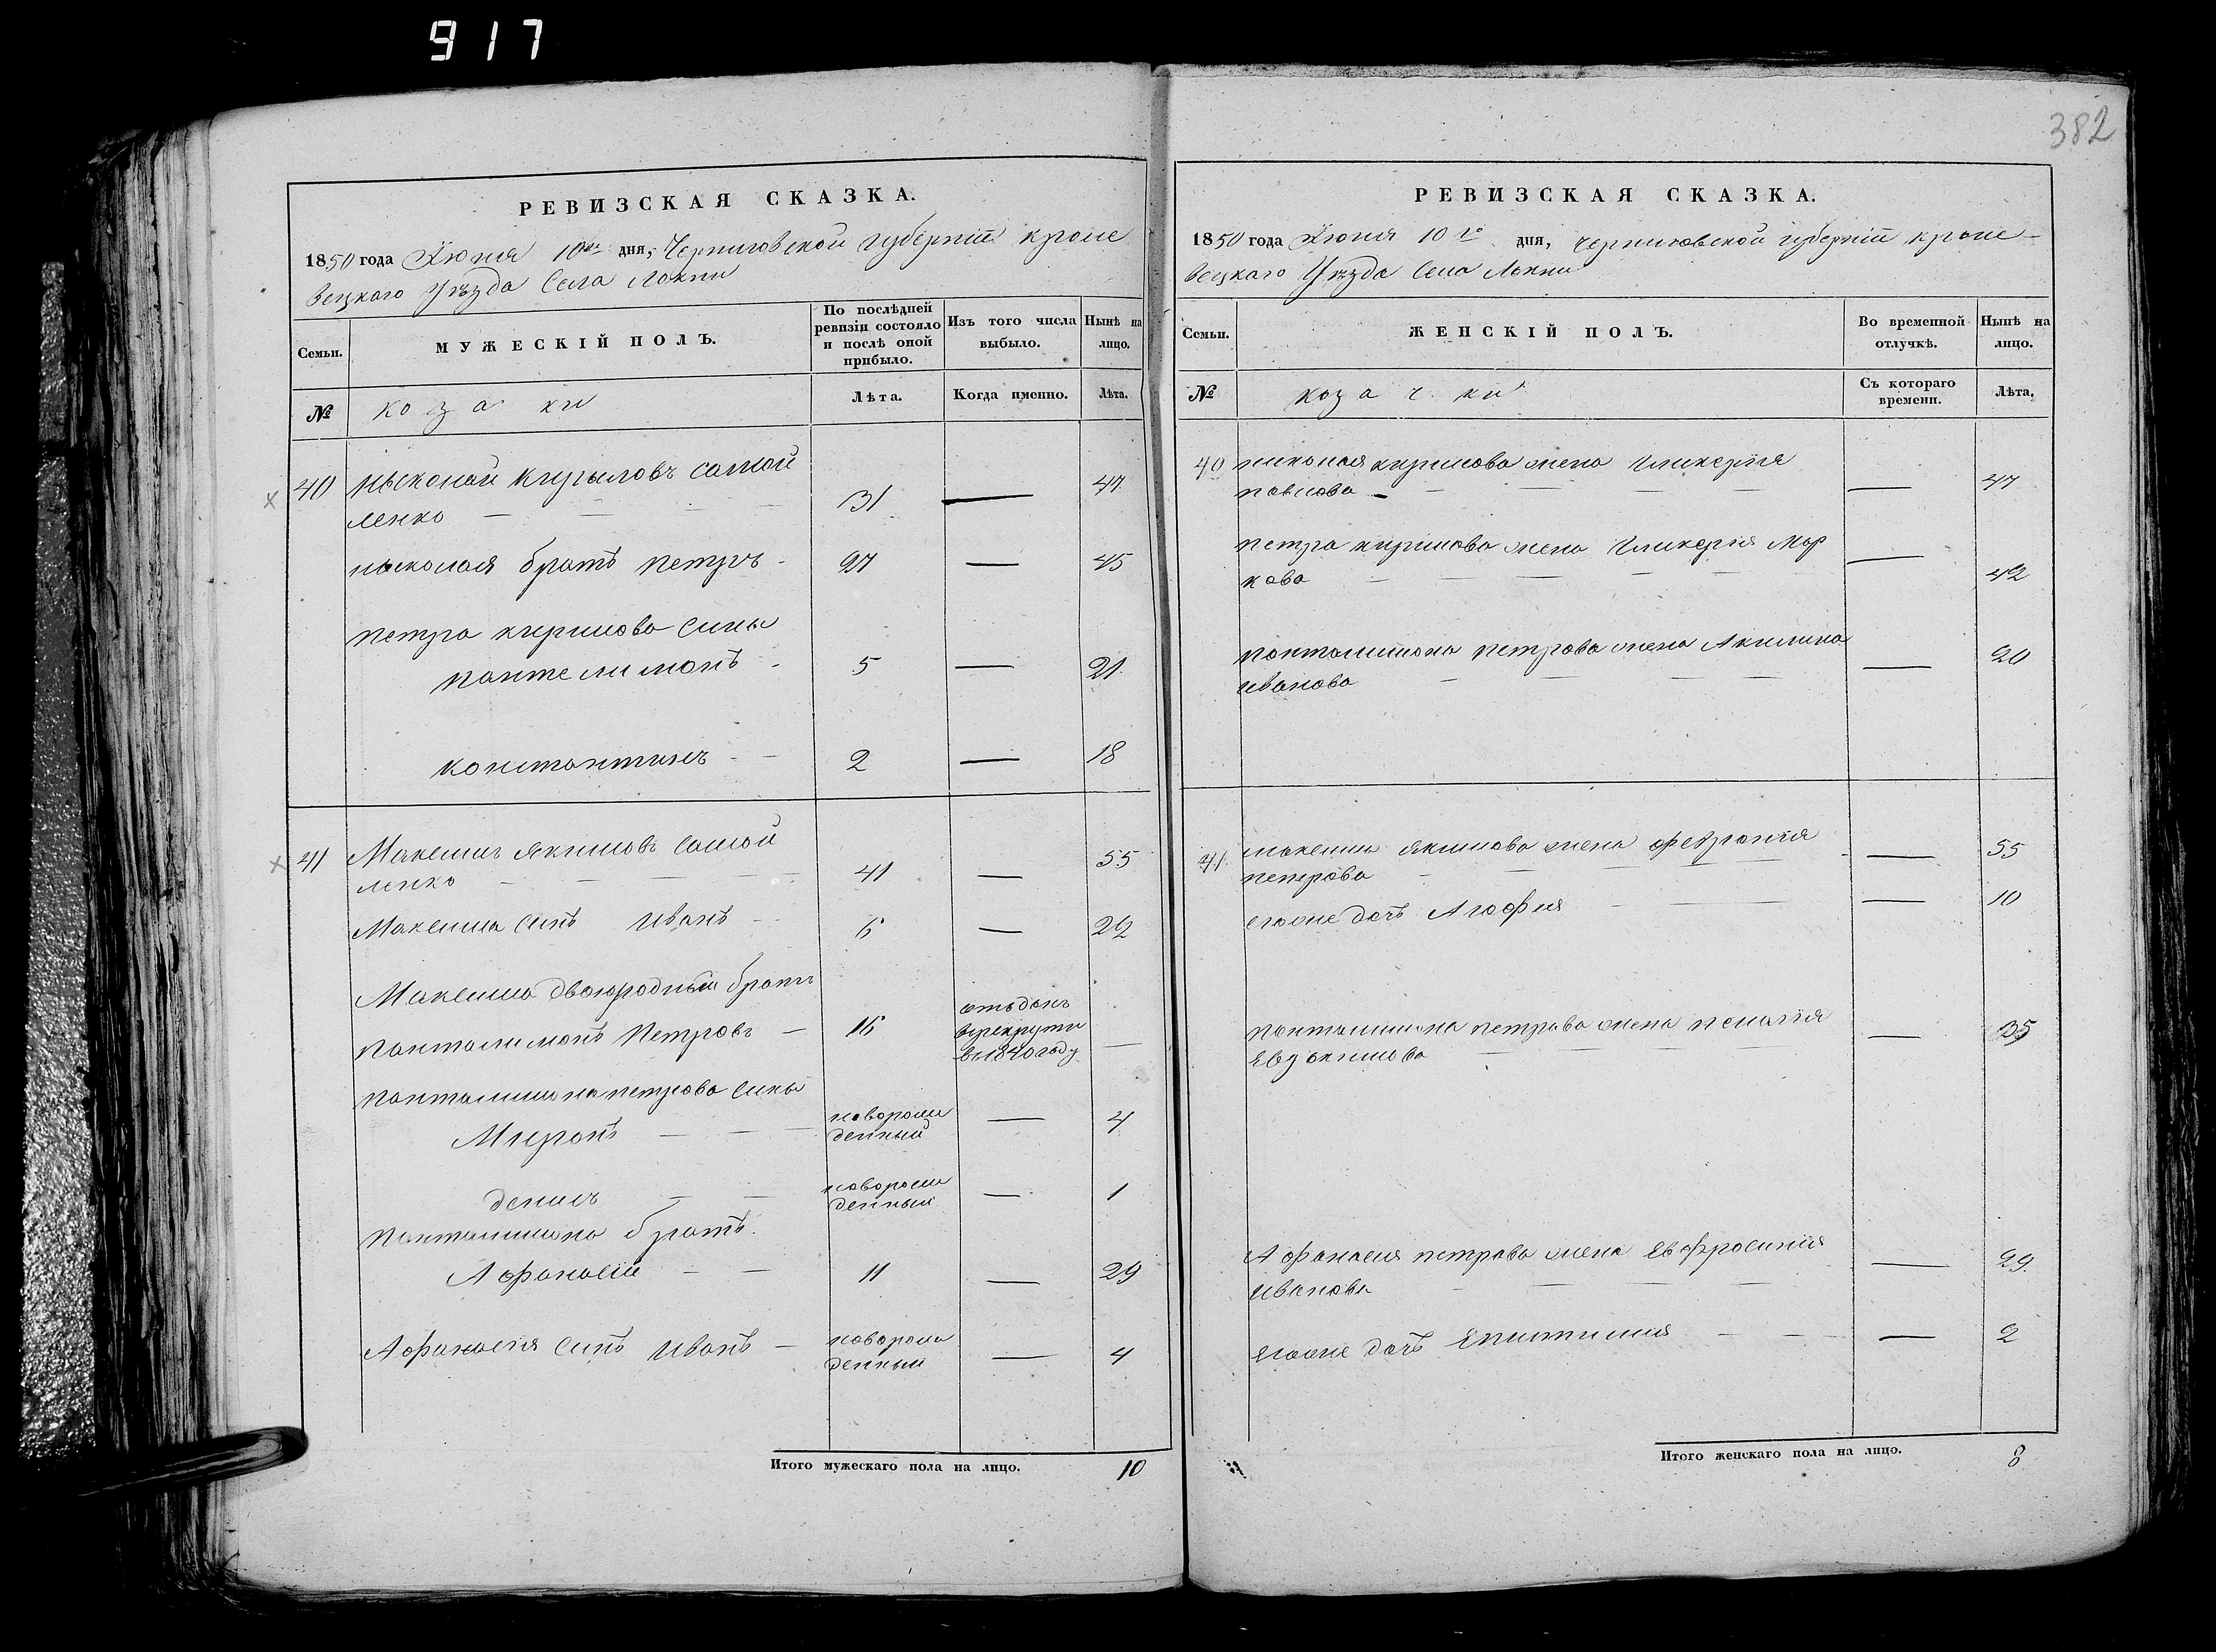 917
382
РЕВИЗСКАЯ СКАЗКА.
1850 года Іюня 10го дня, Черниговской губерніи кроле
вецкаго Уѣзда Села Локни
Семьи.
МУЖЕСКІЙ ПОЛЪ.
По послѣдней
ревизіи состояло
и послѣ оной
прибыло.
Изъ того числа
выбыло.
Нынѣ на
лицо.
№
козаки
Лѣта.
Когда именно.
Лѣта.
40 николай кирыловъ самой
ленко — 31 — 47
николая братъ петръ — 27 — 45
петра кирилова сины
пантелимонъ — 5 — 21
константинъ — 2 — 18
41 Максимъ якимовъ самой
ленко — 41 — 55
Максима синъ иванъ — 6 — 22
Максима двоюродный братъ
пантелимонъ Петровъ — 16 отъданъ
врекруты
в1840году —
панталимона петрова сины
Миронъ — новорож
денный — 4
денисъ — новорож
денный — 1
панталимона братъ
Афанасій — 11 — 29
Афанасія синъ иванъ — новорож
денный — 4
Итого мужескаго пола на лицо. 10
РЕВИЗСКАЯ СКАЗКА.
1850 года Іюня 10го дня, черниговской губерніи кроле-
вецкаго Уѣзда Села Локни
Семьи.
ЖЕНСКІЙ ПОЛЪ.
Во временной
отлучкѣ.
Нынѣ на
лицо.
№
козачки
Съ котораго
времени.
Лѣта,
40 николая кирилова жена гликерія
павлова — — 47
петра кирилова жена гликерія мар
кова — — 42
панталимона петрова жена Акилина
иванова — — 20
41. максима якимова жена феврония
петрова — — 55
егоже дочь Агафия — — 10
панталимона петрова жена пелагія
евдокимова — — 35
Афанасия петрова жена евфросинія
иванова — — 29.
егоже дочь — — 2
Итого женскаго пола на лицо. 8